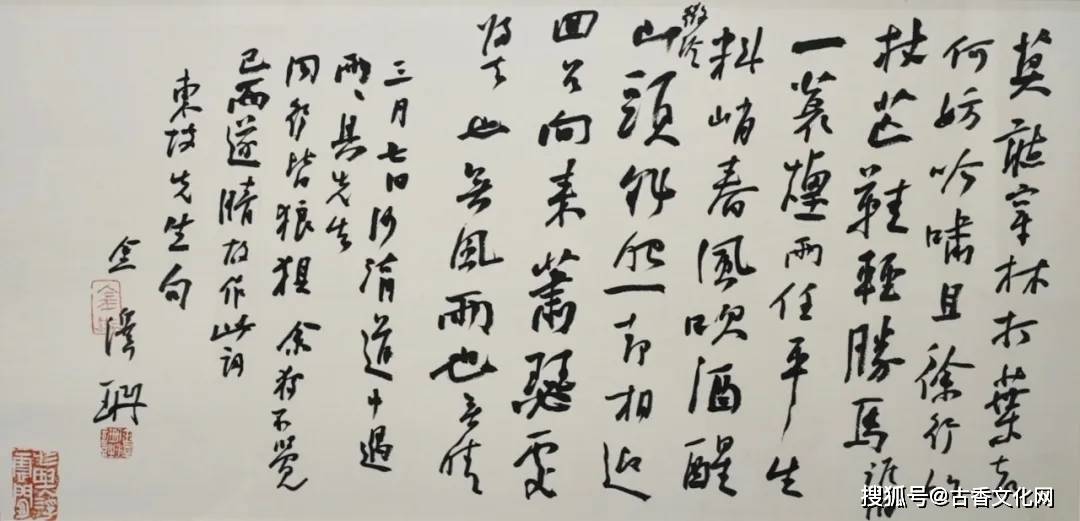 莫聽穿林打葉聲
何妨吟嘯且徐行竹
杖芒鞋輕勝馬誰怕
一蓑煙雨任平生
料峭春風吹酒醒
微冷
山頭斜照却相迎
回首向来蕭瑟處
歸去也無風雨也無晴
三月七日沙湖道中遇
雨、具先去
同行皆狼狽余獨不覺
已而遂晴故作此詞
東坡先生句
金溪
搜狐号@古香文化网